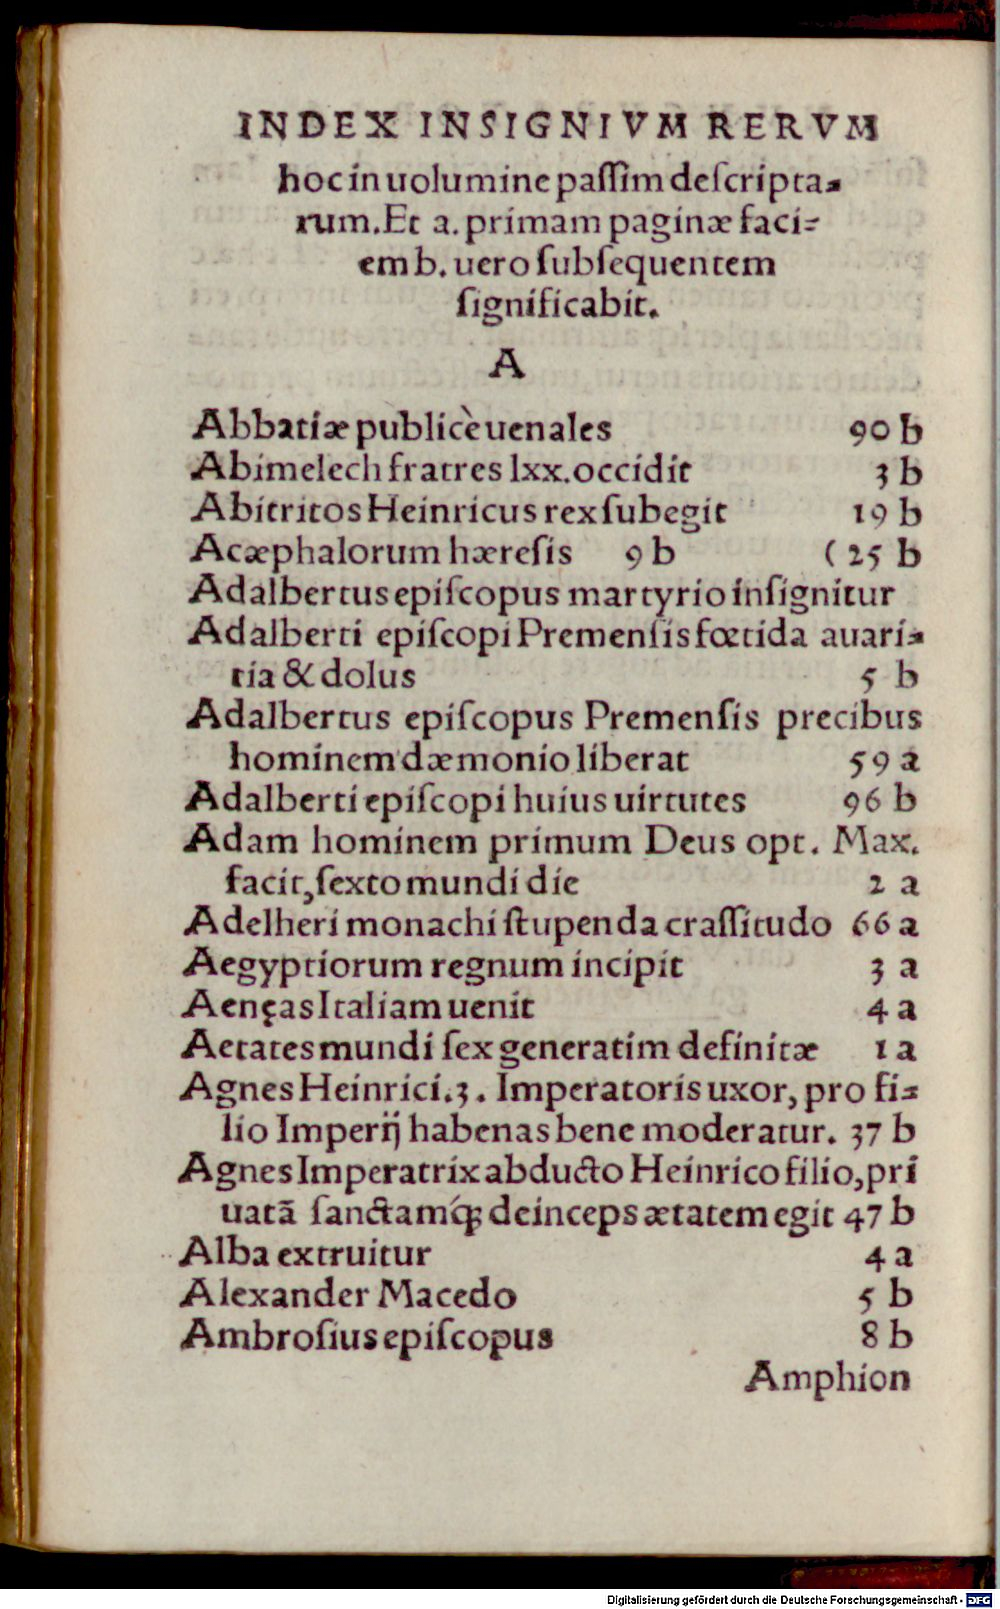 INDEX INSIGNIVM RERVM
hoc in uolumine paſſim deſcripta-
rum. Et a. primam paginæ faci-
em b. uero ſubſequentem
ſignificabit.
A
Abbatiæ publicè uenales 90 b
Abimelech fratres lxx. occidit 3 b
Abitritos Heinricus rex ſubegit 19 b
Acæphalorum hæreſis 9 b ( 25 b
Adalbertus epiſcopus martyrio inſignitur
Adalberti epiſcopi Premenſis fœtida auari-
tia & dolus 5 b
Adalbertus epiſcopus Premenſis precibus
hominem dæmonio liberat 59 a
Adalberti epiſcopi huius uirtutes 96 b
Adam hominem primum Deus opt. Max.
facit, ſexto mundi die 2 a
Adelheri monachi ſtupenda craſſitudo 66 a
Aegyptiorum regnum incipit 3 a
Aenęas Italiam uenit 4 a
Aetates mundi ſex generatim definitæ 1 a
Agnes Heinrici .3. Imperatoris uxor, pro fi-
lio Imperij habenas bene moderatur. 37 b
Agnes Imperatrix abducto Heinrico filio, pri
uatā ſanctamq́ꝫ deinceps ætatem egit 47 b
Alba extruitur 4 a
Alexander Macedo 5 b
Ambroſius epiſcopus 8 b
Amphion
Digitalisierung gefördert durch die Deutsche Forschungsgemeinschaft - DFG